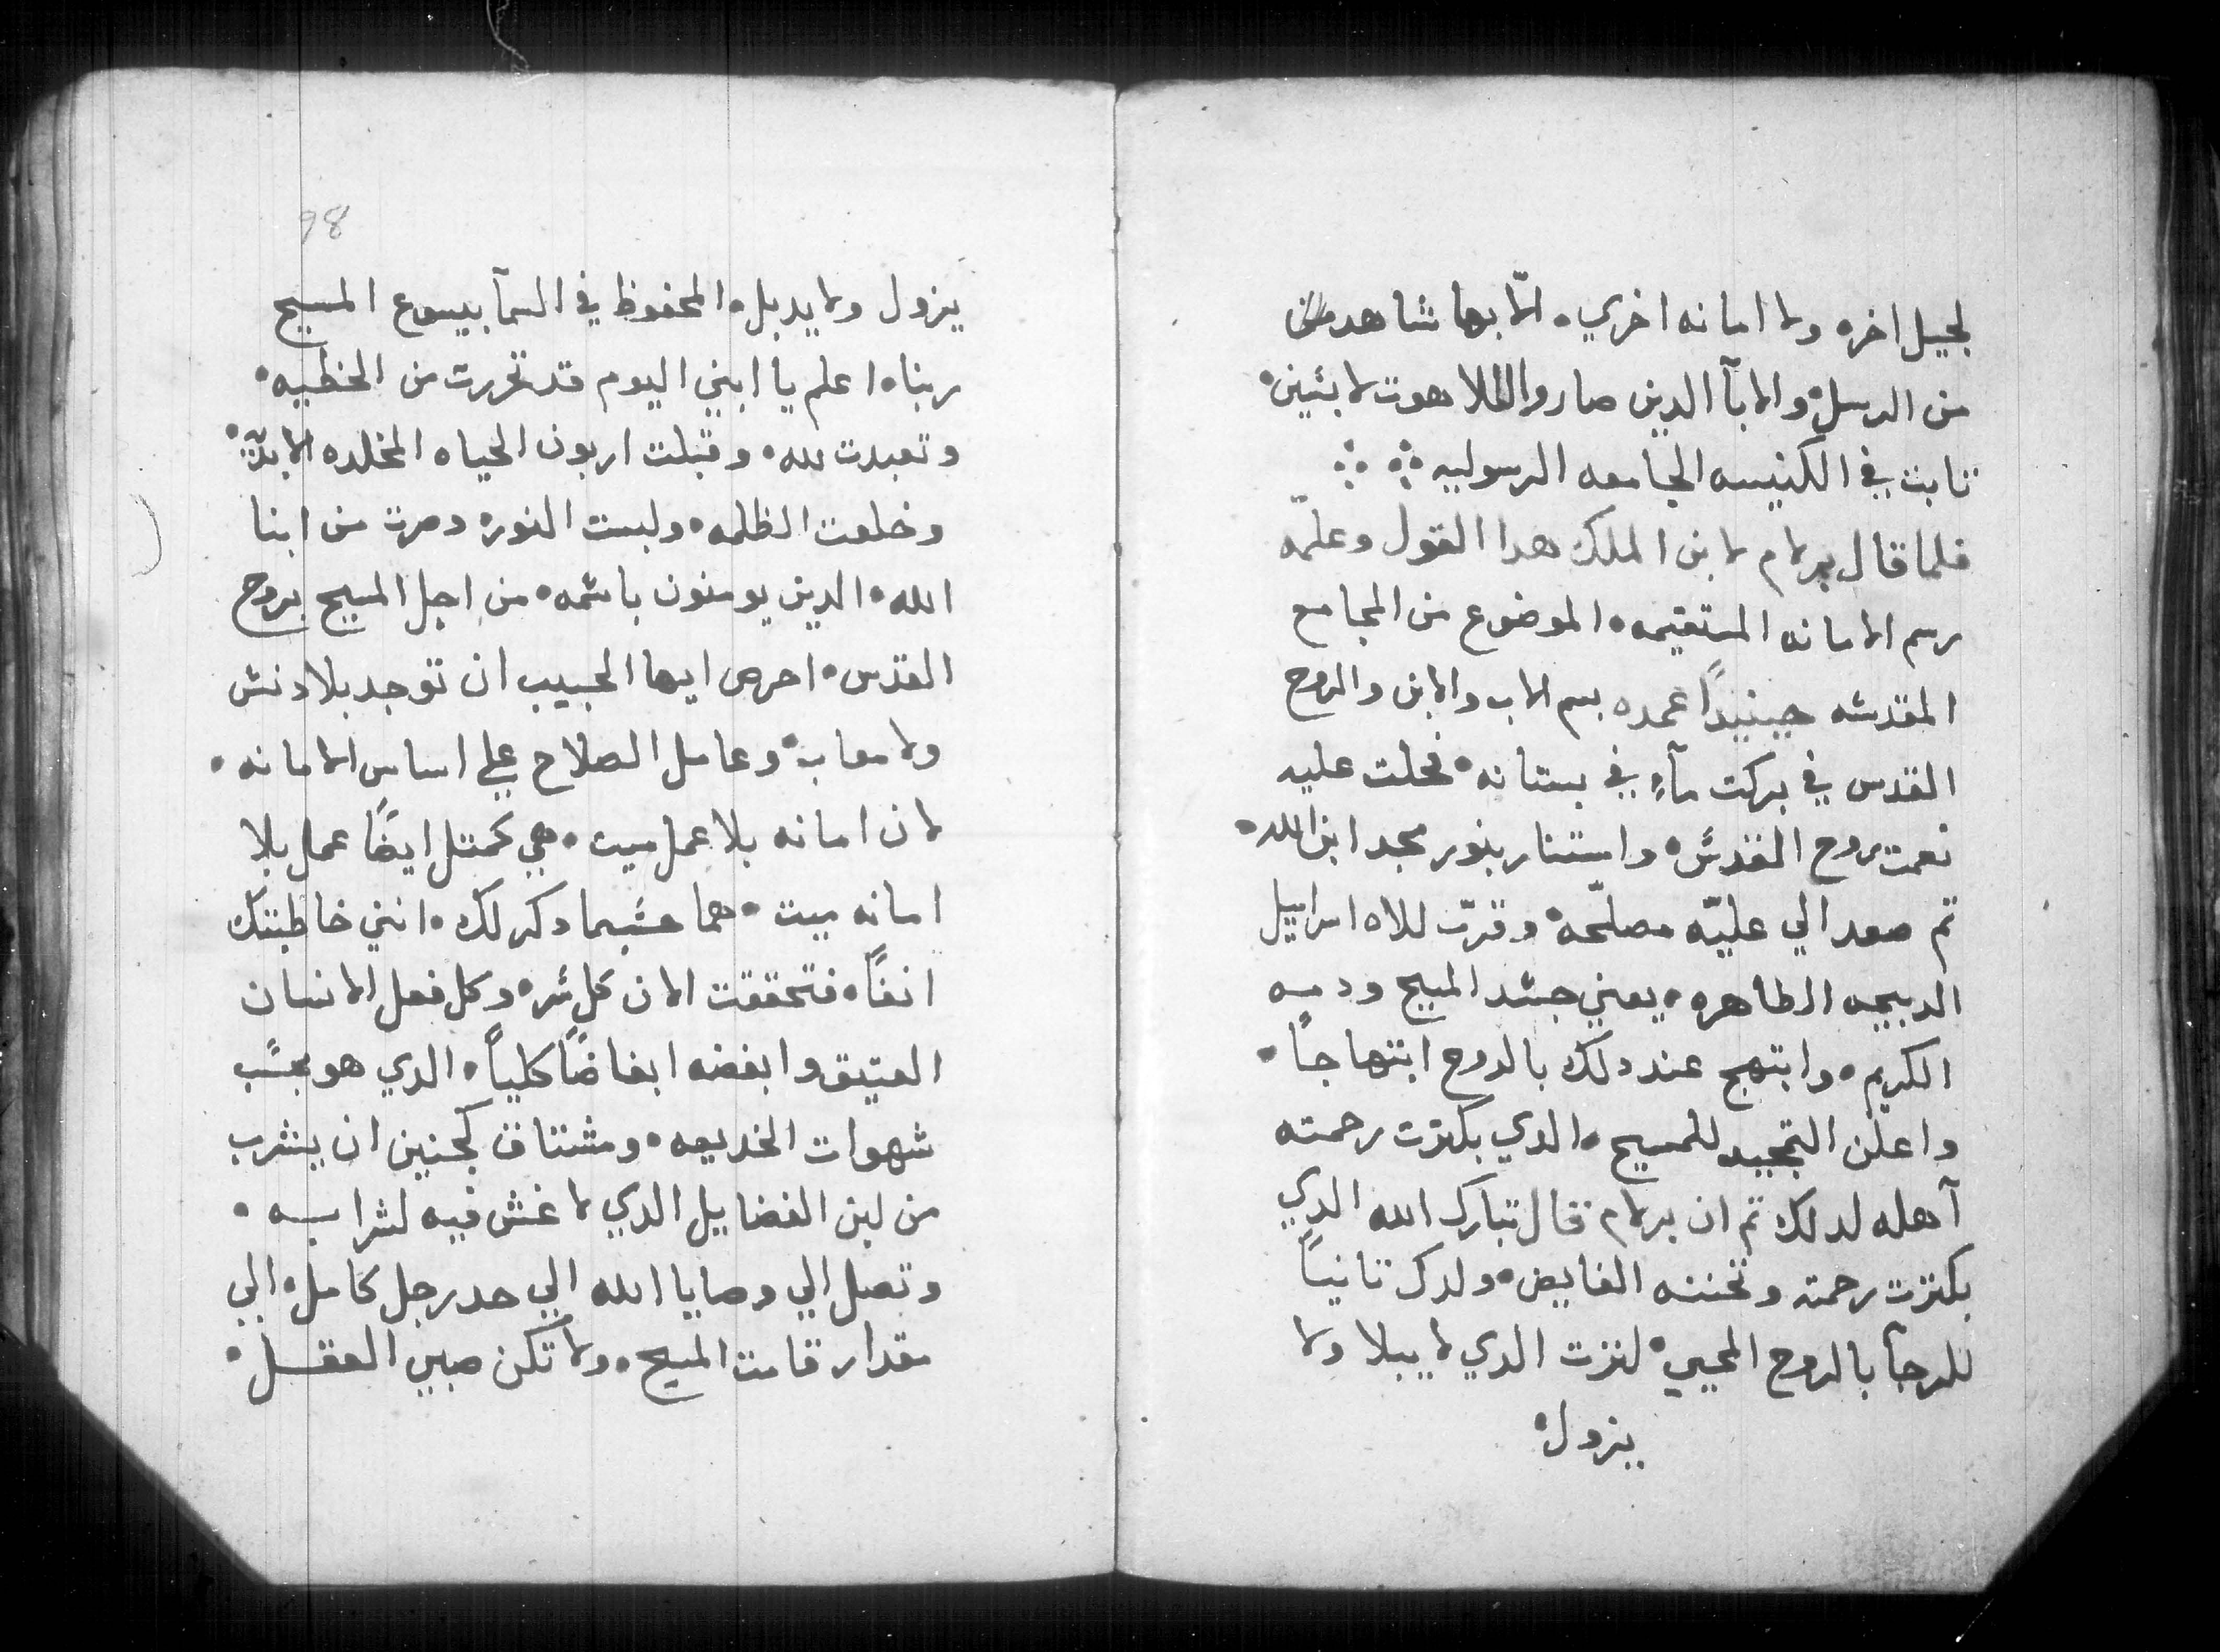 لجيل اخره ولا امانه اخري. الّا بها شاهد
من الرسل. والابآ الدين صاروا اللاهوت لابثين.
تابت في الكنيسه الجامعه الرسوليه
فلما قال برلام لابن الملك هدا القول وعلمّه
رسم الامانه المستقيمه. الموضوع من المجامع
المقدسه حينيداً عمده بسم الاب والابن والروح
القدس في بركت مآءٍ في بستانه. فحلت عليه
نعمت روح القدس. واستنار بنور مجد ابن الله.
تم صعد الي عليّه مصلحّه. وقرّب للاه اسراييل
الدبيحه الطاهره. يعني جسد المسيح ودمه
الكريم. وابتهج عند دلك بالروح ابتهاجاً.
واعلن التمجيد للمسيح. الدي بكترت رحمته
آهله لدلك تم ان برلام قال تبارك الله الدي
بكترت رحمته وتحننه الفايض. ولدك تانياً
للرجآ بالروح المحيي. لترت الدي لا يبلا ولا
يزول.
98
يزول ولا يدبل. المحفوظ في السمآ بيسوع المسيح
ربنا. اعلم يا ابني اليوم قد تحررت من الخطيه.
وتعبدت لله. وقبلت اربون الحياه المخلده الابديّه.
وخلعت الظلمه. ولبست النور. وصرت من ابنا
الله. الدين يومنون باسمه. من اجل المسيح بروح
القدس. احرص ايها الحبيب ان توجد بلا دنس
ولا معاب. وعامل الصلاح علي اساس الامانه.
لان امانه بلا عمل ميت. هي كمتل ايضاً عمل بلا
امانه ميت. هما حسبما دكر لك. انني خاطبتك
انفاً. فتحققت الان كل شر. وكل فعل الانسان
العتيق وابغضه ابغاضاً كلياً. الدي هو بحسب
شهوات الخديعه. ومشتاق كجنين ان يشرب
من لبن الفضاييل الدي لا غش فيه لشرابه.
وتصل الي وصايا الله الي حد رجل كامل. الي
مقدار قامت المسيح. ولا تكن صبي العقل.